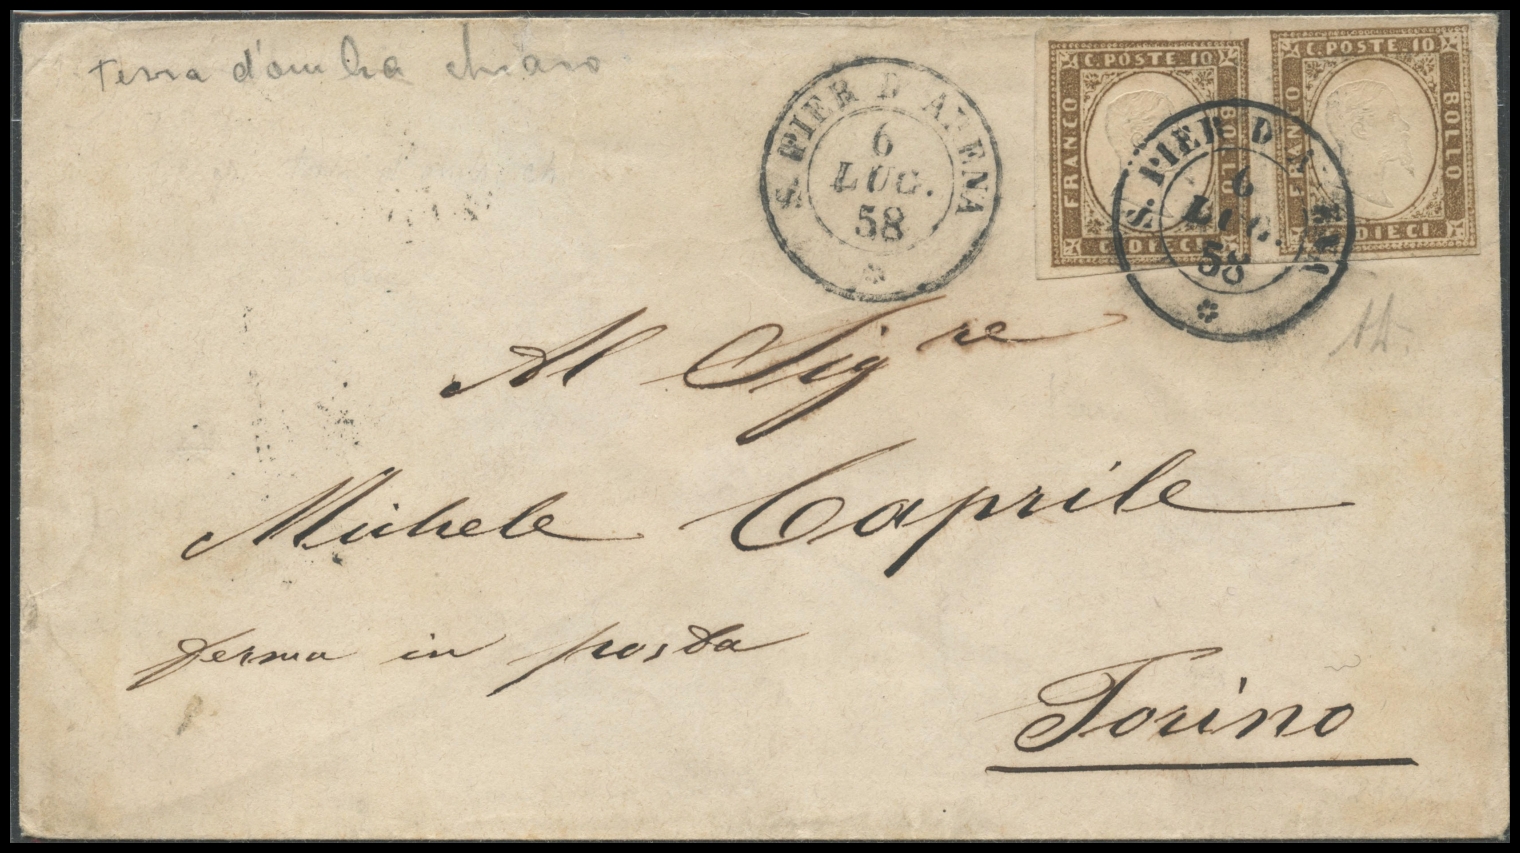 terra d'ombra chiaro
S. PIER D ARENA
6
LUG.
58
C. POSTE. 10
FRANCO
BOLLO
C. DIECI.
C. POSTE. 10
FRANCO
BOLLO
DIECI.
S. PIER D A
6
LUG.
58
Al Sig.re
Michele Caprile
ferma in posta
Torino